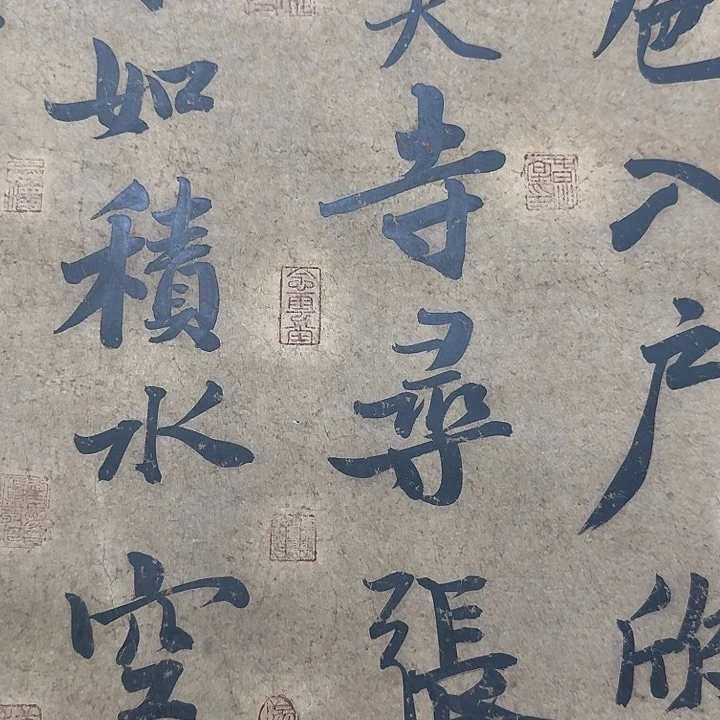 色入户欣
天寺尋張
如積水空